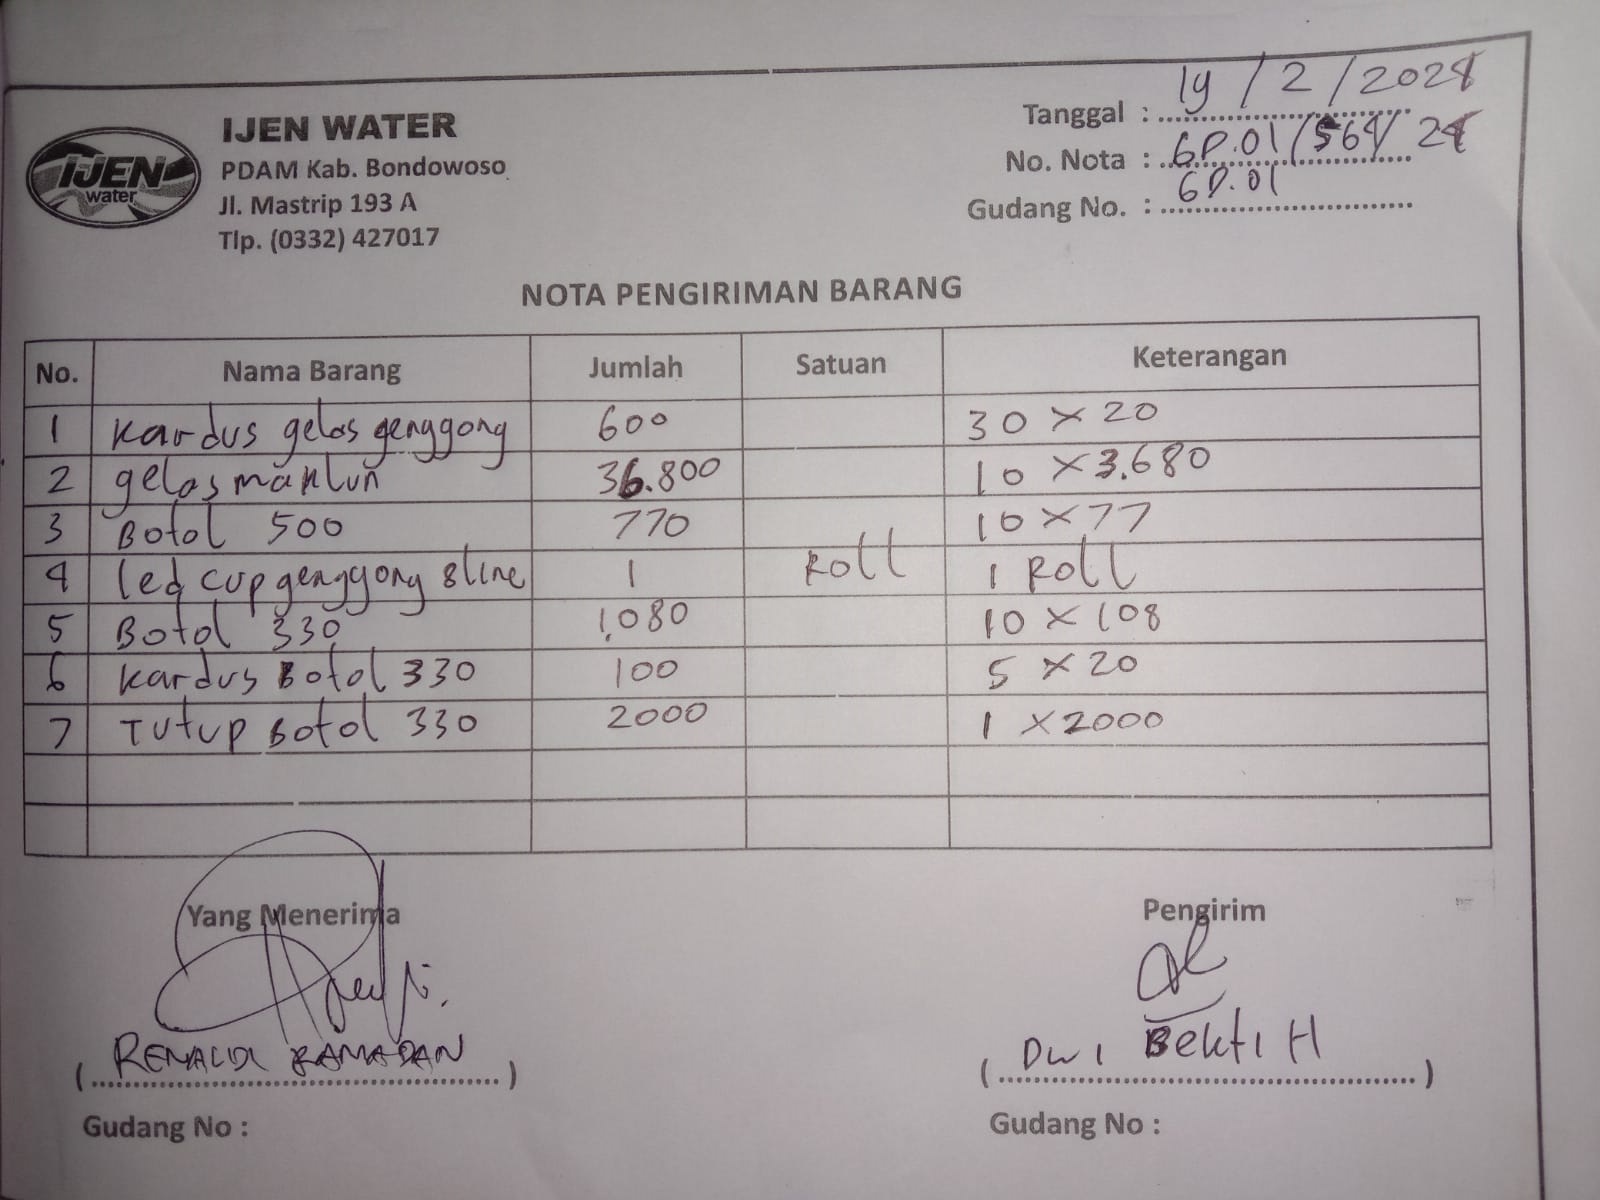 IJEN
water
IJEN WATER
PDAM Kab. Bondowoso
Jl. Mastrip 193 A
Tlp. (0332) 427017
Tanggal : 19 / 2 / 2024
No. Nota : GD.01/564/24
Gudang No. : GD.01
NOTA PENGIRIMAN BARANG
No. Nama Barang Jumlah Satuan Keterangan
1 Kardus gelas genggong 600 30 x 20
2 gelas maklun 36.800 10 x 3.680
3 Botol 500 770 10 x 77
4 led cup genggong 8line 1 Roll 1 Roll
5 Botol 330 1.080 10 x 108
6 Kardus Botol 330 100 5 x 20
7 Tutup Botol 330 2000 1 x 2000
Yang Menerima Pengirim
( RENALDI RAMADAN ) ( Dwi Bekti H )
Gudang No : Gudang No :